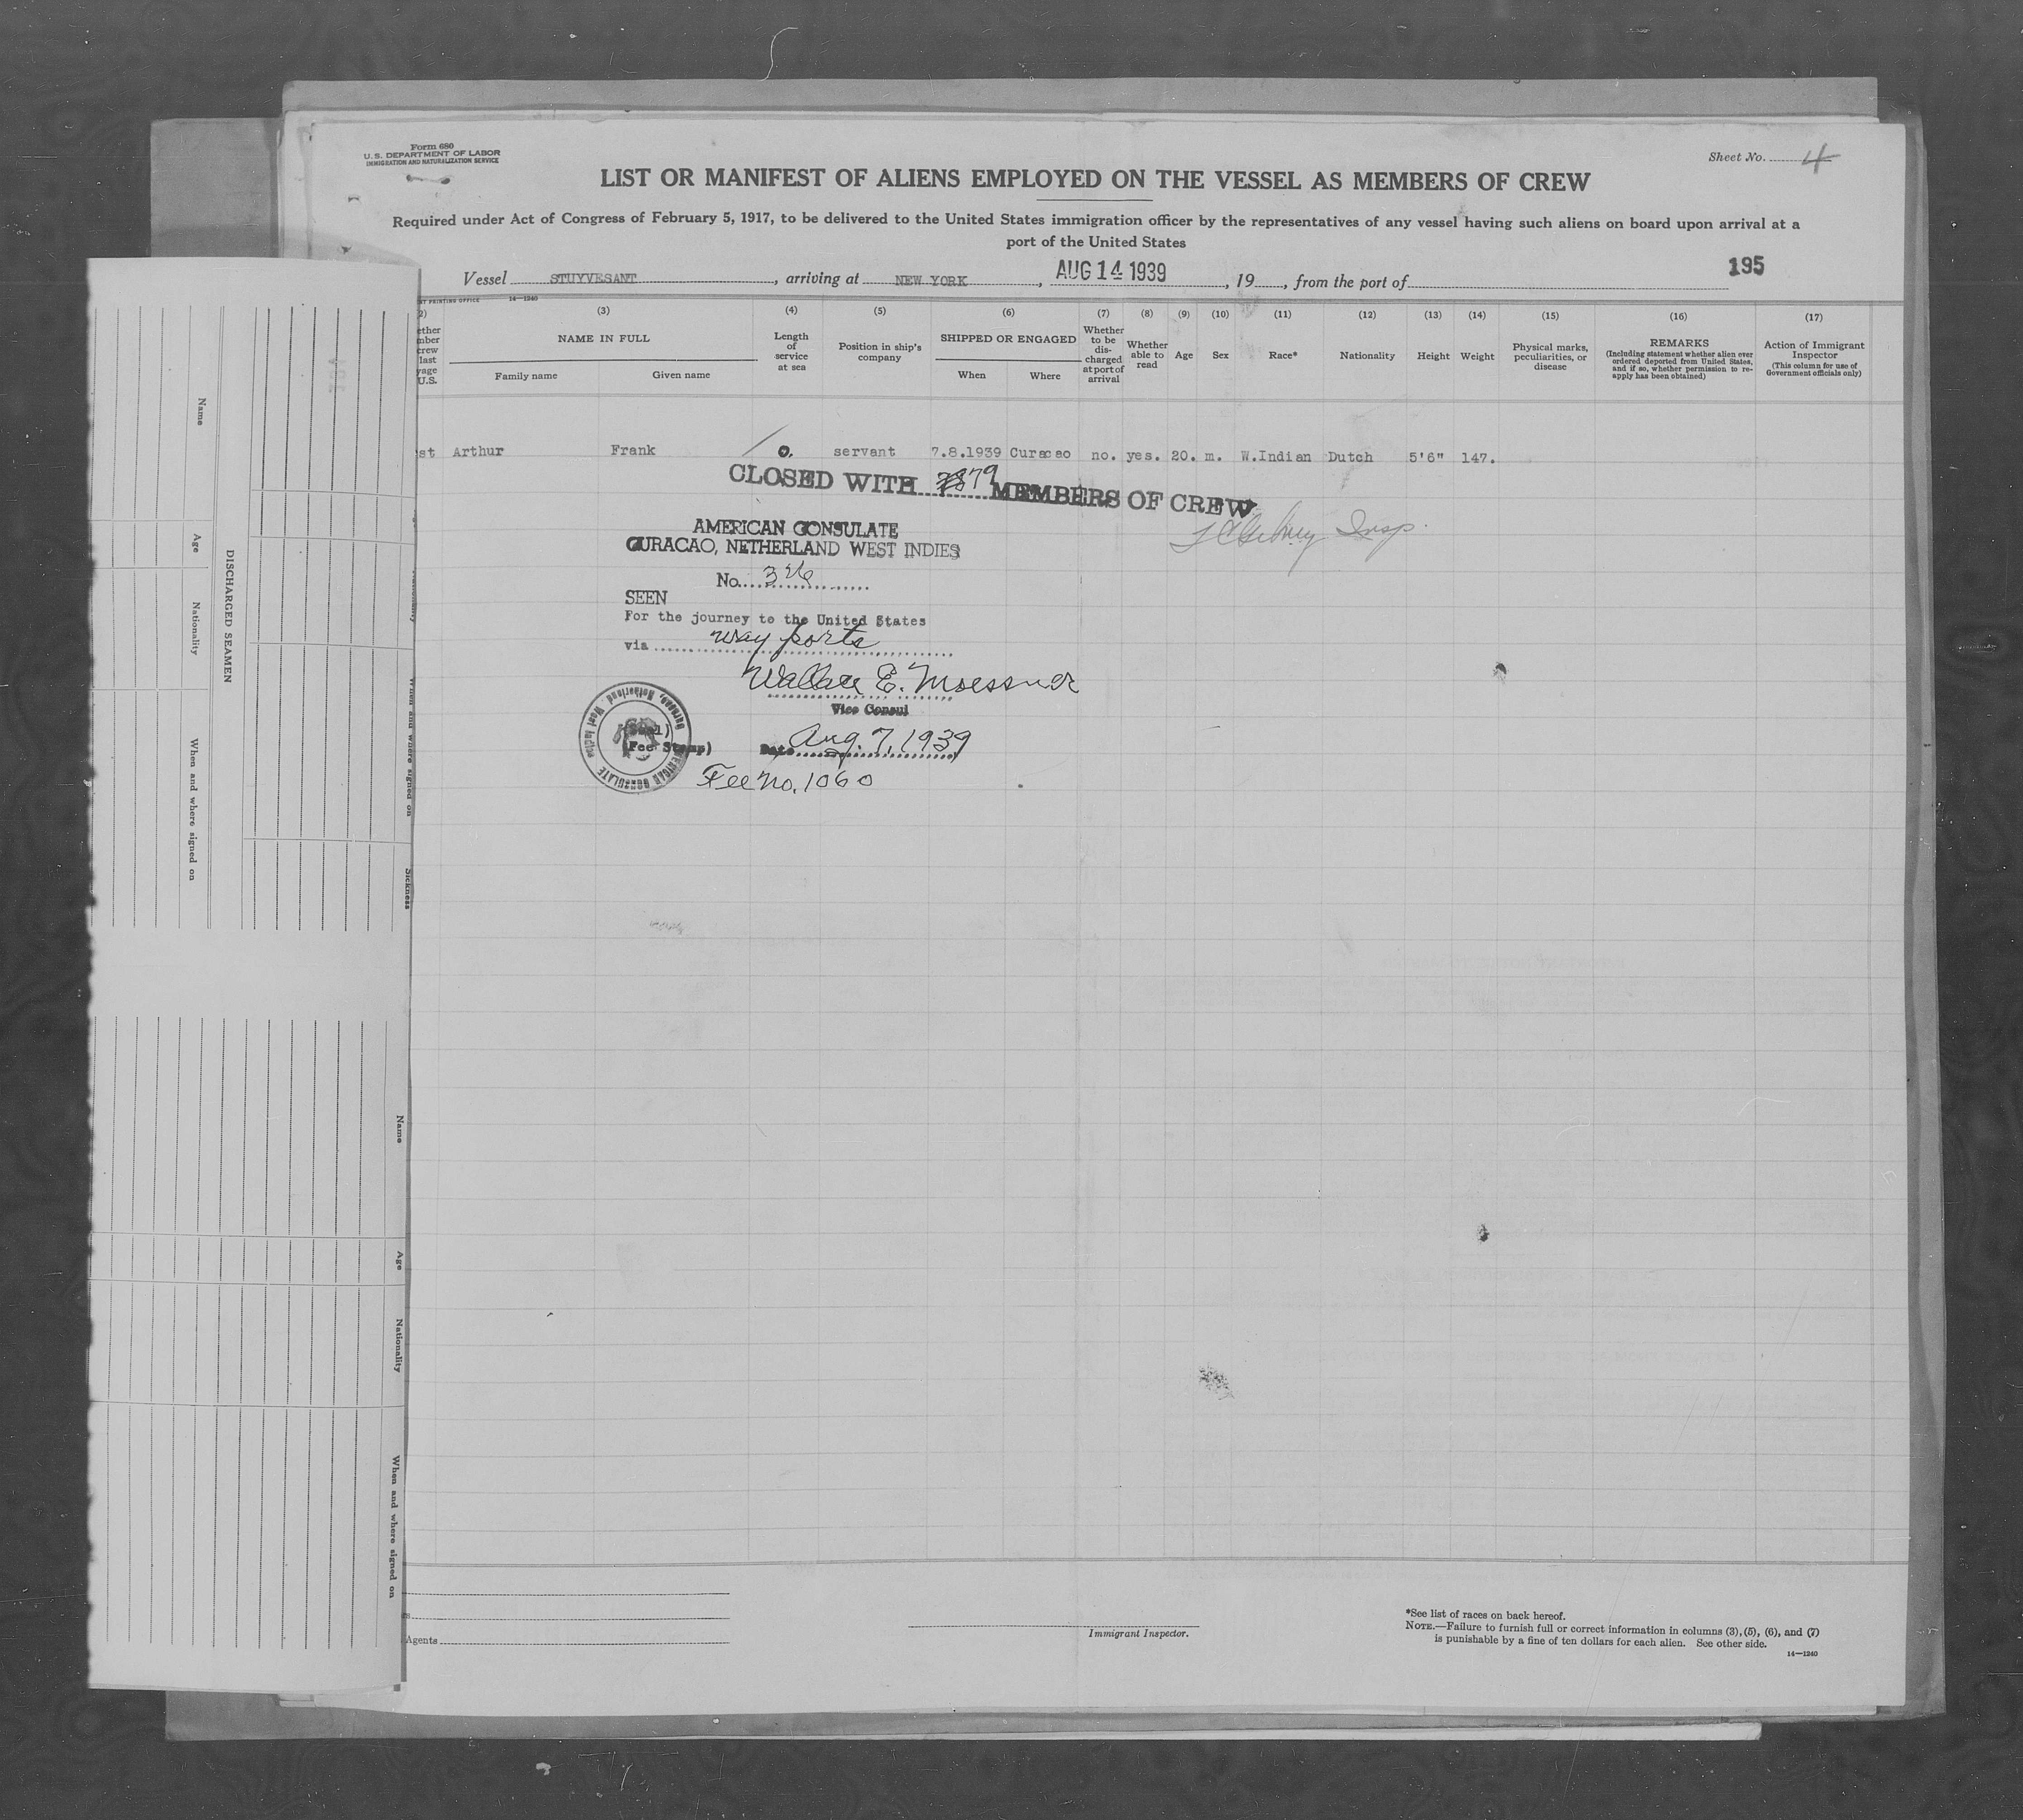 Form 680
U.S. DEPARTMENT OF LABOR
IMMIGRATION AND NATURALIZATION SERVICE
Sheet No. 4
LIST OR MANIFEST OF ALIENS EMPLOYED ON THE VESSEL AS MEMBERS OF CREW
Required under Act of Congress of February 5, 1917, to be delivered to the United States immigration officer by the representatives of any vessel having such aliens on board upon arrival at a
port of the United States
Vessel STUYVESANT, arriving at NEW YORK, AUG 14 1939, 19, from the port of 195
14—1240
(3) (4) (5) (6) (7) (8) (9) (10) (11) (12) (13) (14) (15) (16) (17)
NAME IN FULL
Family name
Given name
Length
of
service
at sea
Position in ship's
company
SHIPPED OR ENGAGED
When
Where
Whether
to be
dis-
charged
at port of
arrival
Whether
able to
read
Age
Sex
Race*
Nationality
Height
Weight
Physical marks,
peculiarities, or
disease
REMARKS
(Including statement whether alien ever
ordered deported from United States,
and if so, whether permission to re-
apply has been obtained)
Action of Immigrant
Inspector
(This column for use of
Government officials only)
st Arthur Frank 0. servant 7.8.1939 Curacao no. yes. 20. m. W.Indian Dutch 5'6" 147.
CLOSED WITH 79 MEMBERS OF CREW
Insp.
AMERICAN CONSULATE
CURACAO, NETHERLAND WEST INDIES
No. 326
SEEN
For the journey to the United States
via way ports
Wallace E. Moessner
Vice Consul
(Seal)
(Fee Stamp)
Date Aug. 7, 1939
Fee No. 1060
AMERICAN CONSULATE
Curacao, Netherland West Indies
Agents
Immigrant Inspector.
*See list of races on back hereof.
NOTE.—Failure to furnish full or correct information in columns (3), (5), (6), and (7)
is punishable by a fine of ten dollars for each alien. See other side.
14—1240
DISCHARGED SEAMEN
Name
Age
Nationality
When and where signed on
When and where signed on
Sickness
Name
Age
Nationality
When and where signed on